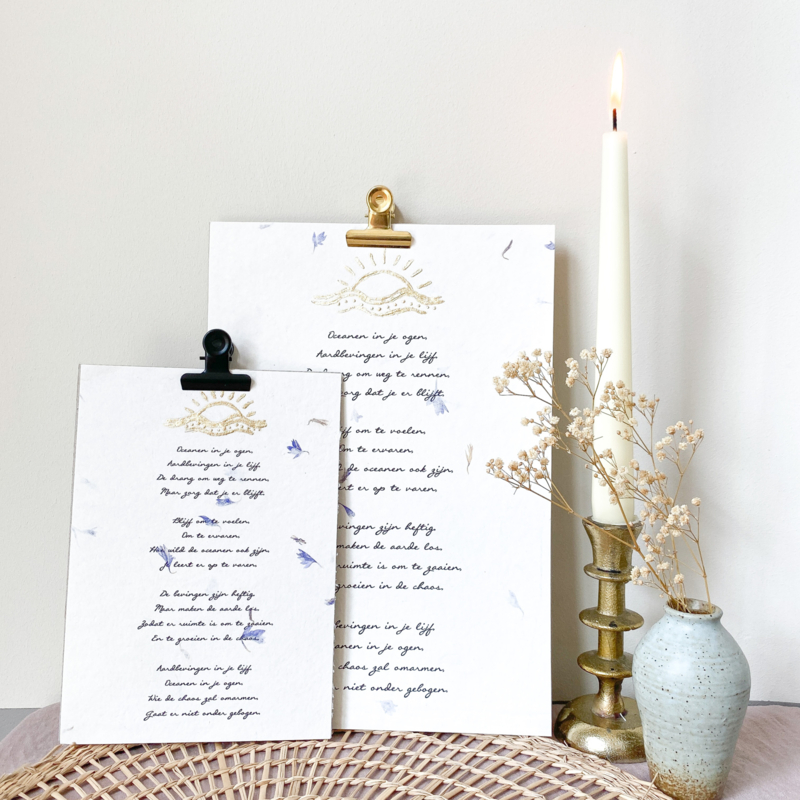 Oceanen in je ogen.
Aardbevingen in je lijf.
De drang om weg te rennen.
Maar zorg dat je er blijft.
Blijf om te voelen.
Om te ervaren.
Hoe wild de oceanen ook zijn.
Je leert er op te varen.
De bevingen zijn heftig
Maar maken de aarde los.
Zodat er ruimte is om te zaaien.
En te groeien in de chaos.
Aardbevingen in je lijf.
Oceanen in je ogen.
Wie de chaos zal omarmen.
Gaat er niet onder gebogen.
Oceanen in je ogen.
Aardbevingen in je lijf.
drang om weg te rennen.
zorg dat je er blijft.
lijf om te voelen.
Om te ervaren.
de oceanen ook zijn.
leert er op te varen.
bevingen zijn heftig.
maken de aarde los.
ruimte is om te zaaien.
groeien in de chaos.
bevingen in je lijf.
anen in je ogen.
chaos zal omarmen.
niet onder gebogen.